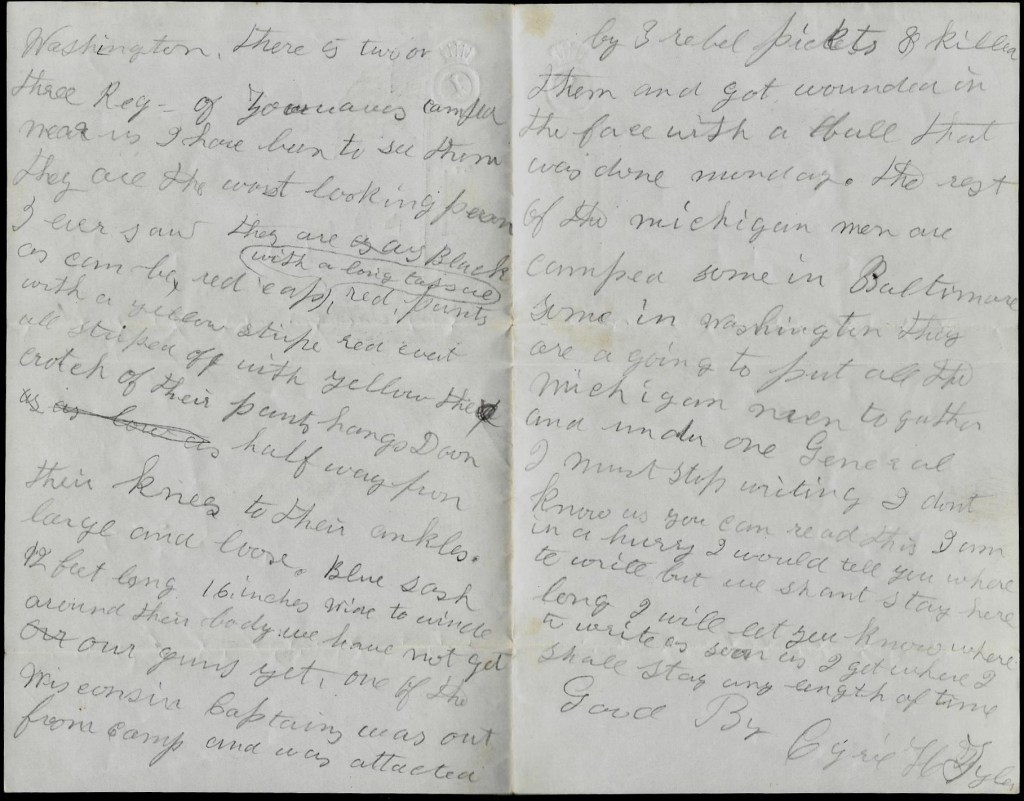 Washington. there is two or
three Reg- of Zouaves camped
near us I have been to see them
they are the worst looking
I ever saw they are as Black
as can be, red cap, with a long tassel red pants
with a yellow stripe red coat
all striped off with yellow the
crotch of their pants hangs Down
as as low as half way from
their knees to their ankles.
large and loose. Blue sash
12 feet long 16 inches wide to winde
around their body. we have not got
our our guns yet, one of the
Wisconsin Captains was out
from camp and was attacted
by 3 rebel pickets & killed
them and got wounded in
the face with a Ball that
was done munday. the rest
of the michigan men are
camped some in Baltimore
some in washington they
are a going to put all the
michigan men to gather
and under one General
I must stop writing I dont
know as you can read this I am
in a hurry I would tell you where
to write but we shant stay here
long I will let you know where
to write as soon as I get where I
shall stay any length of time
Good By
H Tyler